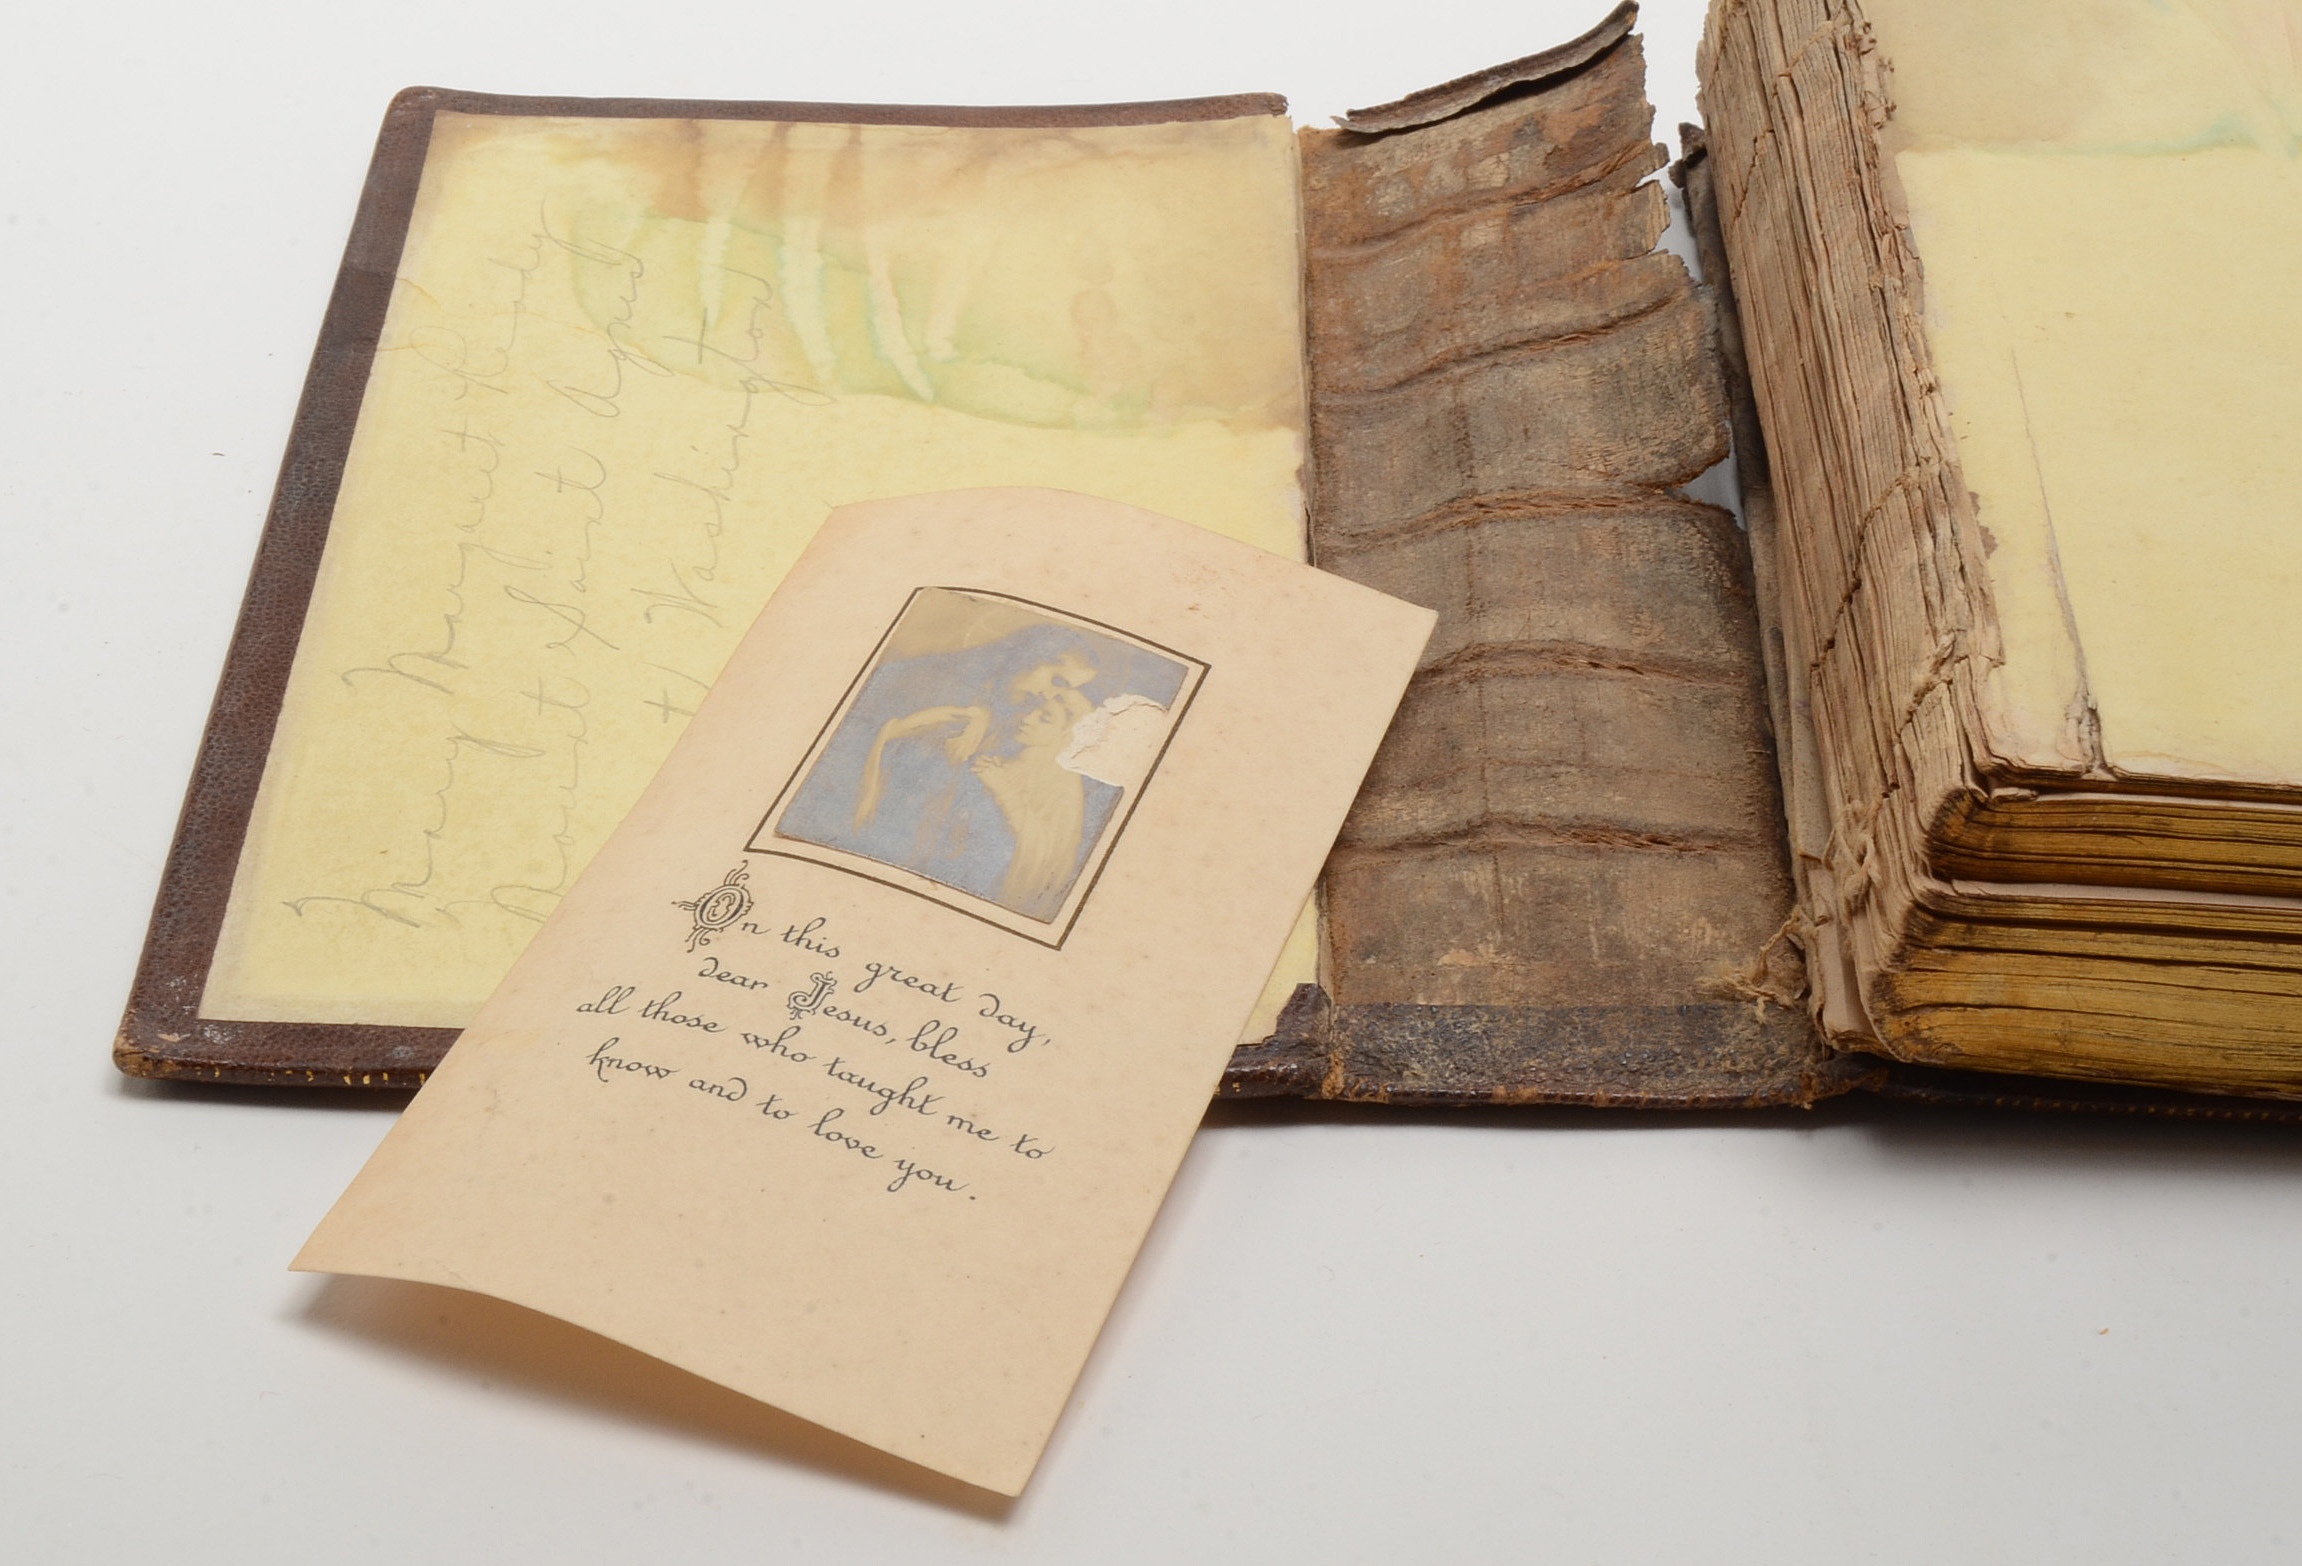 Mary Margaret
Mount Saint Agnes
t Washington
On this great day,
dear Jesus, bless
all those who taught me to
know and to love you.